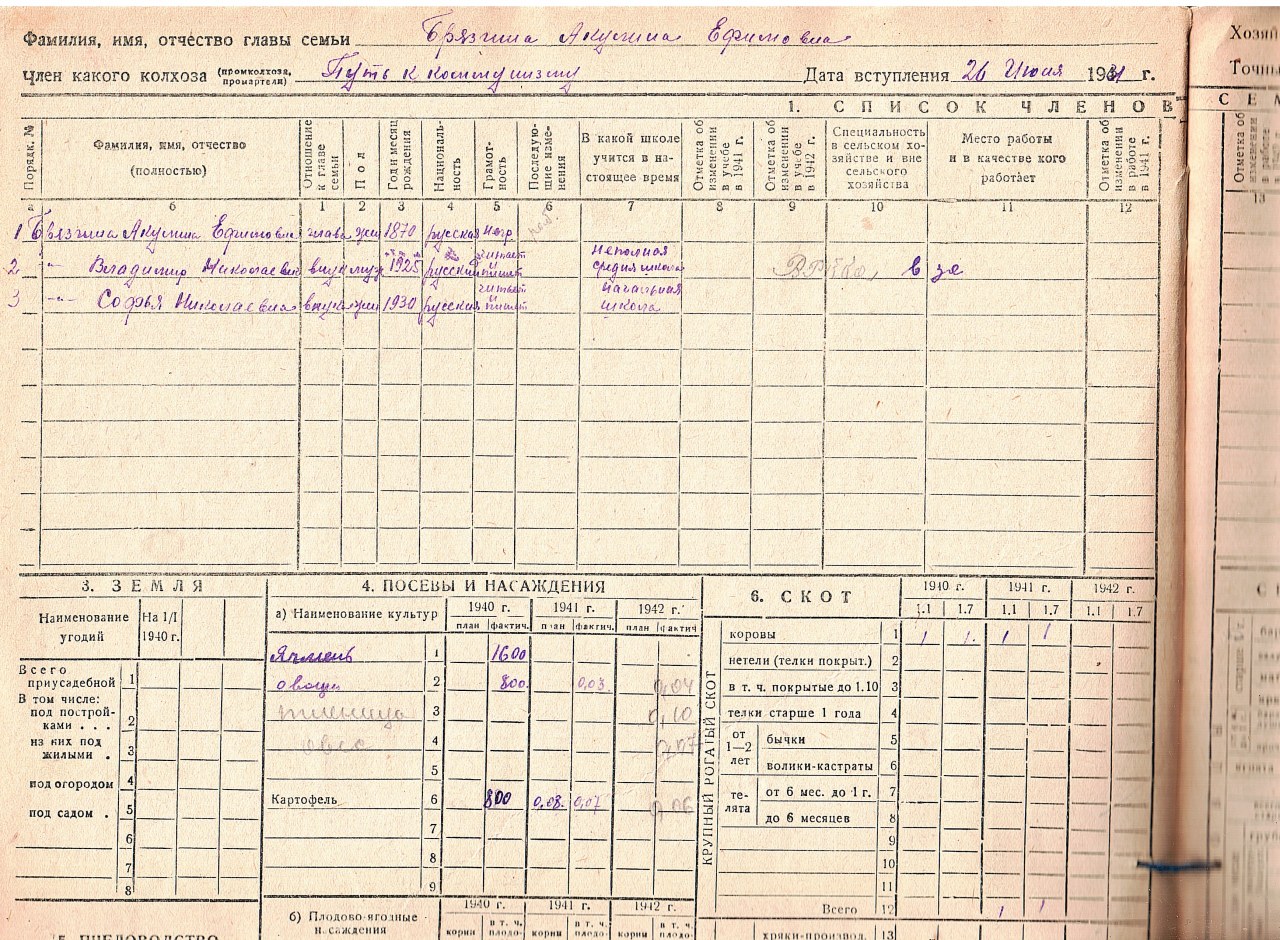 Фамилия, имя, отчество главы семьи Брязгина Акулина Ефимовна
Член какого колхоза (промколхоза, промартели) Путь к коммунизму Дата вступления 26 Июля 1931 г.
1. СПИСОК ЧЛЕНОВ
Порядк. № Фамилия, имя, отчество (полностью) Отношение к главе семьи Пол Год и месяц рождения Националь-ность Грамот-ность Последую-щие изме-нения В какой школе учится в на-стоящее время Отметка об изменении в учебе в 1941 г. Отметка об изменении в учебе в 1942 г. Специальность в сельском хо-зяйстве и вне сельского хозяйства Место работы и в качестве кого работает Отметка об изменении в работе в 1941 г.
а б 1 2 3 4 5 6 7 8 9 10 11 12
1 Брязгина Акулина Ефимовна глава жен 1870 русская негр.
2 -"- Владимир Николаевич внук муж 1925 русский читает и пишет Неполная средняя школа
3 -"- Софья Николаевна внучка жен 1930 русская читает и пишет Начальная школа
3. ЗЕМЛЯ
Наименование угодий На 1/I 1940 г.
Всего приусадебной 1
В том числе:
под построй-ками . . . 2
из них под жилыми . 3
под огородом 4
под садом . 5
6
7
8
4. ПОСЕВЫ И НАСАЖДЕНИЯ
а) Наименование культур 1940 г. 1941 г. 1942 г.
план фактич. план фактич. план фактич
Ячмень 1 1600
овощи 2 800 0,03 0,04
пшеница 3 0,10
овес 4 0,07
5
Картофель 6 800 0,08 0,07 0,06
7
8
9
б) Плодово-ягодные насаждения 1940 г. 1941 г. 1942 г.
корни в т. ч. плодо- корни в т. ч. плодо- корни в т. ч. плодо-
6. СКОТ 1940 г. 1941 г. 1942 г.
1.1 1.7 1.1 1.7 1.1 1.7
КРУПНЫЙ РОГАТЫЙ СКОТ
коровы 1 1 1 1 1
нетели (телки покрыт.) 2
в т. ч. покрытые до 1.10 3
телки старше 1 года 4
от 1—2 лет бычки 5
волики-кастраты 6
те-лята от 6 мес. до 1 г. 7
до 6 месяцев 8
9
10
11
Всего 12 1 1
хряки-производ. 13
5. ПЧЕЛОВОДСТВО
Хозяй
Точны
СЕМ
13